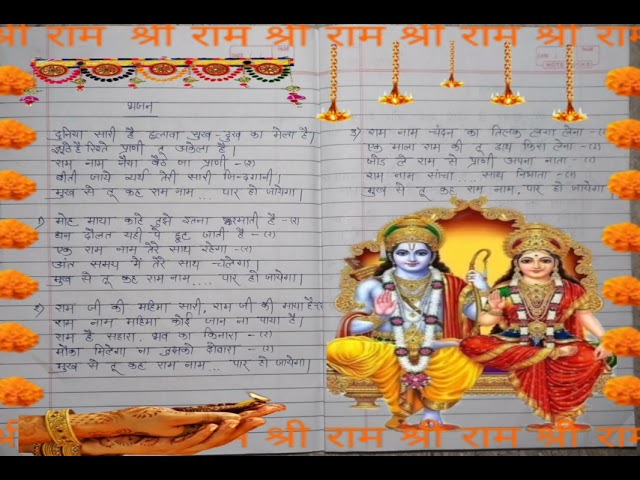 श्री राम श्री राम श्री राम श्री राम श्री राम
भजन
दुनिया सारी है छलावा सुख-दुख का मेला है।
झूठे है रिश्ते प्राणी तू अकेला है।
राम नाम नैया बैठ जा प्राणी-(२)
बीती जाये व्यर्थ तेरी सारी जिन्दगानी।
मुख से तू कह राम नाम.... पार हो जायेगा।
1) मोह माया काहे तुझे इतना भरमाती है-(२)
धन दौलत यही पे छूट जाती है-(२)
एक राम नाम तेरे साथ रहेगा-(२)
अंत समय में तेरे साथ चलेगा।
मुख से तू कह राम नाम.... पार हो जायेगा।
2) राम जी की महिमा सारी, राम जी की माया है-२
राम नाम महिमा कोई जान ना पाया है।
राम है सहारा, भव का किनारा-(२)
मौका मिलेगा ना तुझको दोबारा-(२)
मुख से तू कह राम नाम... पार हो जायेगा।
3) राम नाम चंदन का तिलक लगा लेना-(२)
एक माला राम की तू हाथ फिरा लेना-(२)
जोड़ ले राम से प्राणी अपना नाता-(२)
राम नाम सांचा.... साथ निभाता-(२)
मुख से तू कह राम नाम, पार हो जायेगा।
श्री राम श्री राम श्री राम